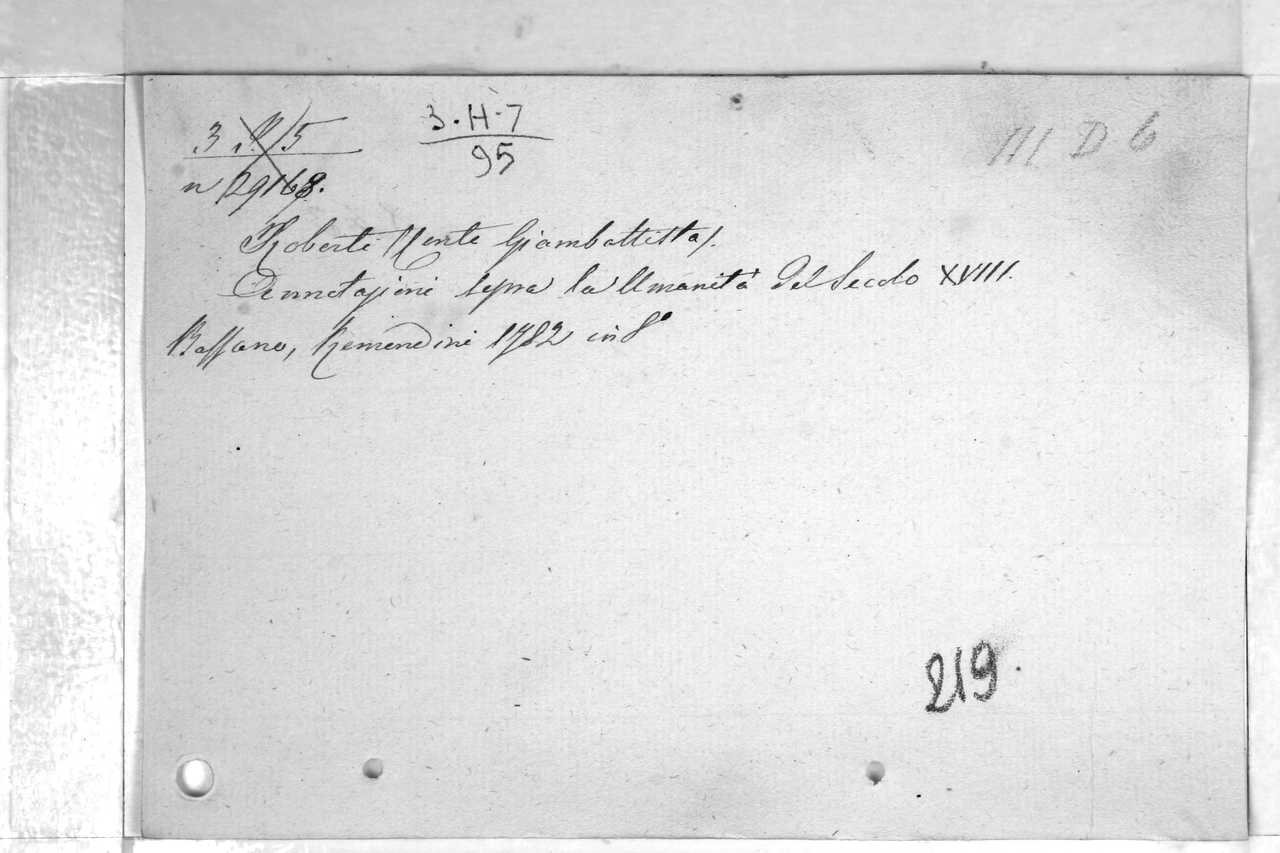 3 15
3·H·7
95
III D 6
n 29168.
Roberti (Conte Giambattista).
Annotazioni sopra la Umanità del Secolo XVIII.
Bassano, Remondini 1782 in 8°
219.